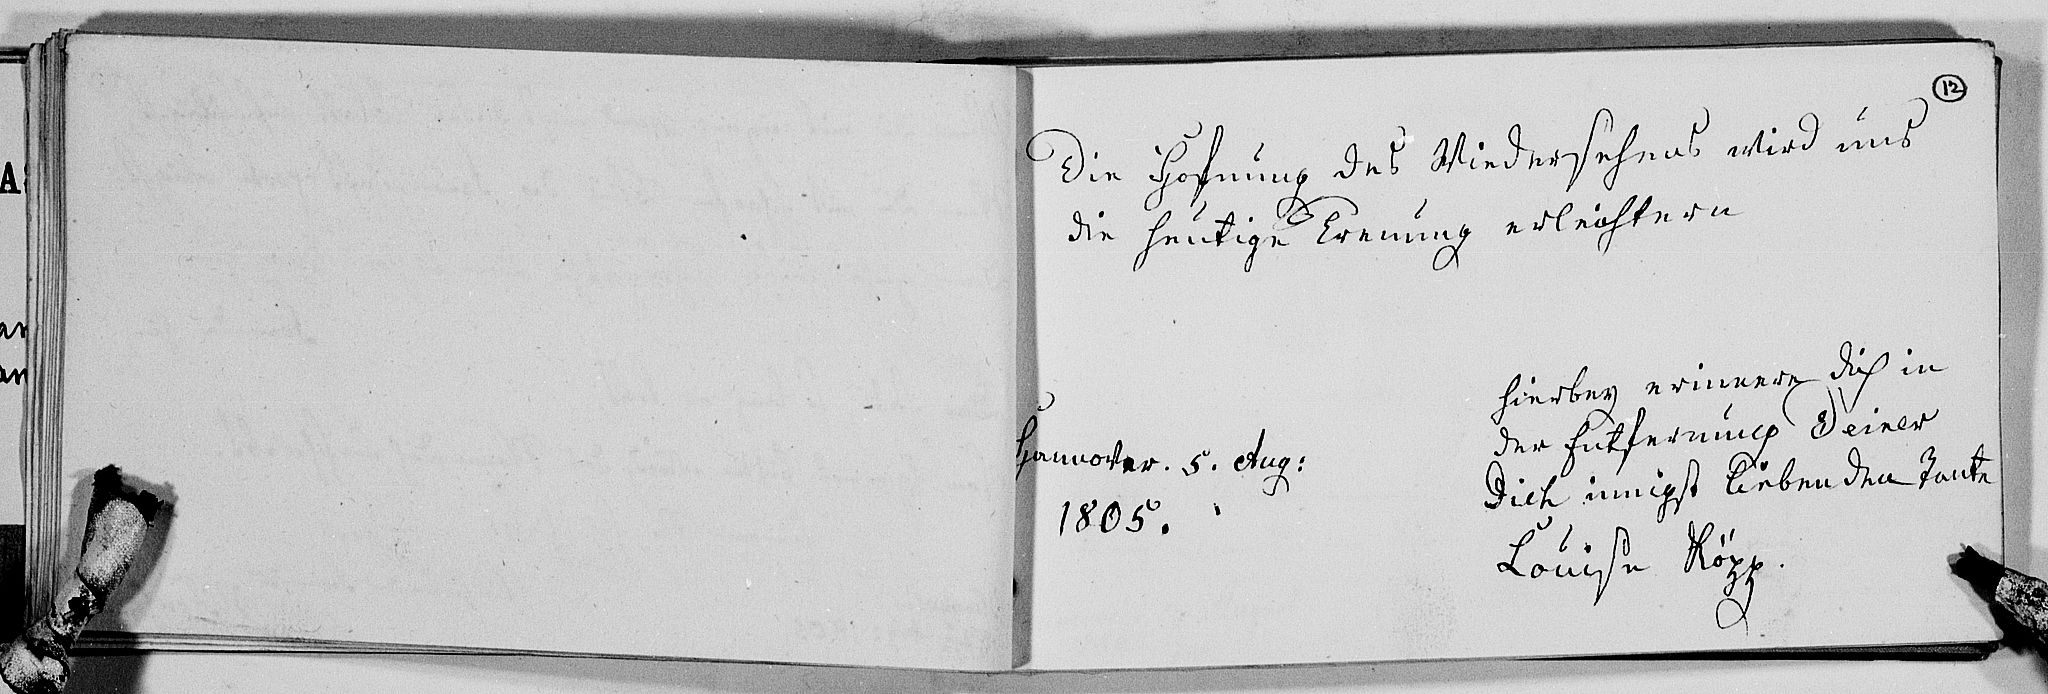 12
Die Hofnung des Wiedersehens wird uns
die heutige Trenung erleichtern
Hannover. 5. Aug:
1805.
hierbey erinnere dich in
der Entfernung Deiner
Dich innigst liebenden Tante
Louise Köpp.